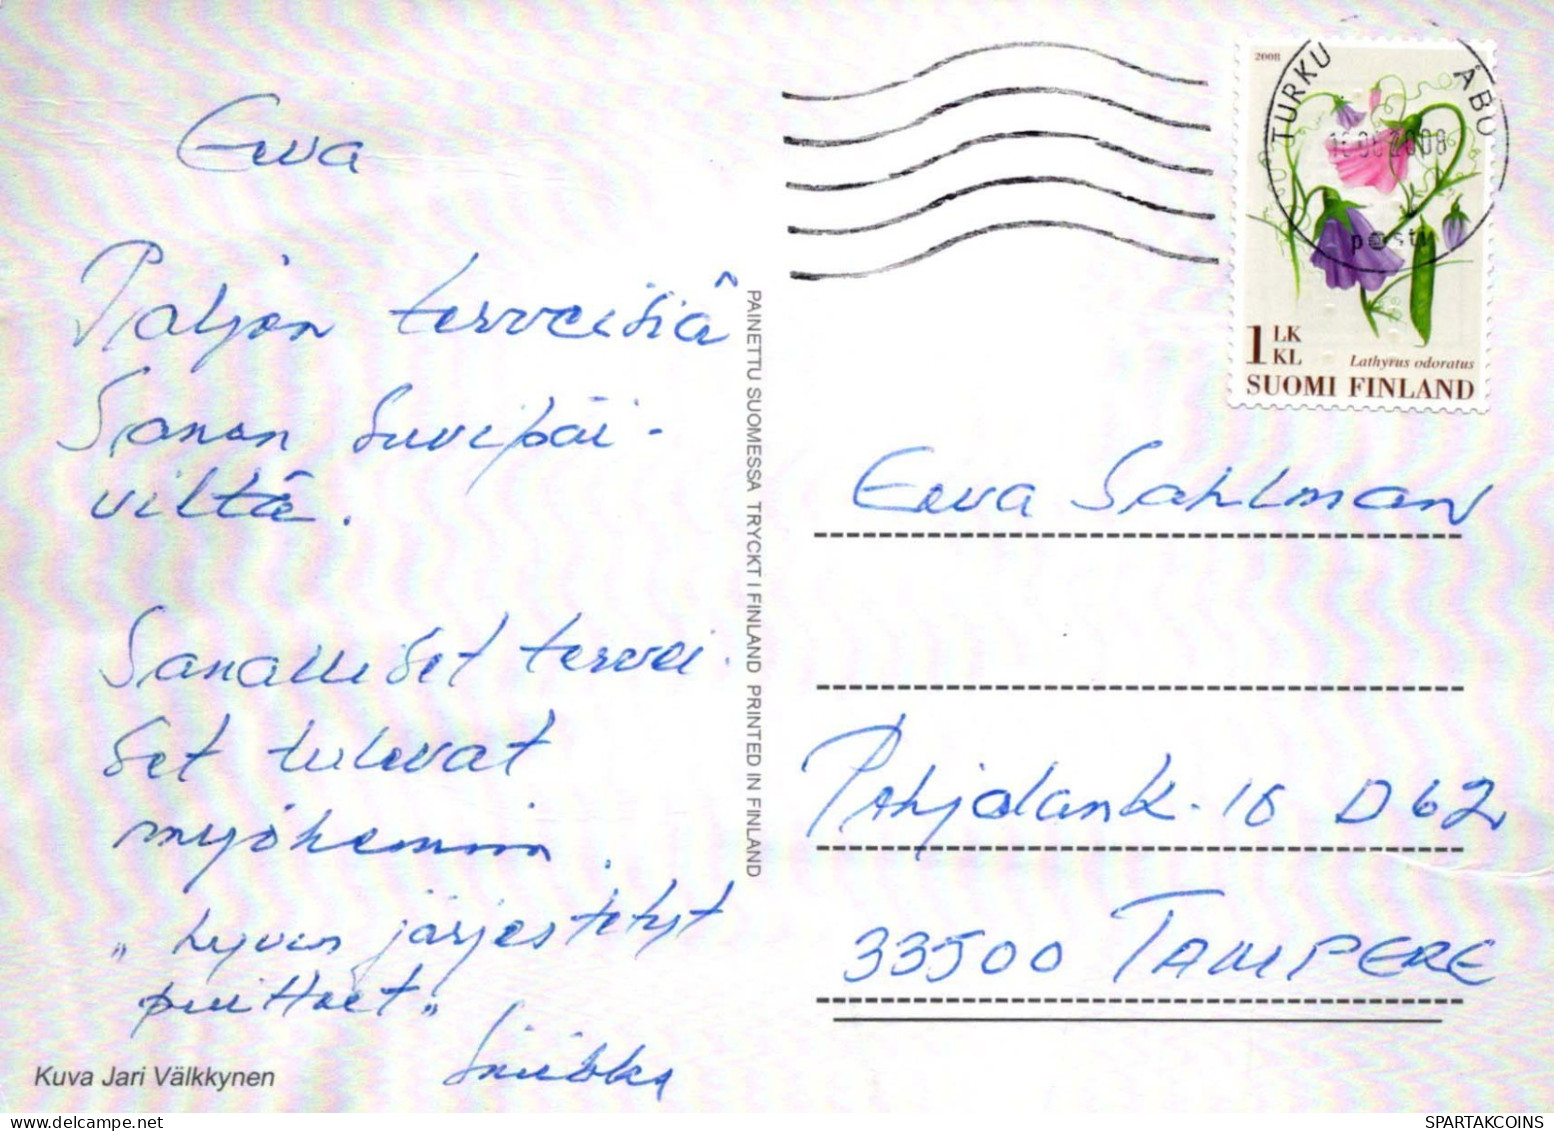 Eeva
Paljon terveisiä
Sanan Suvipäi-
viltä.
Sanalliset tervei-
set tulevat
myöhemmin.
„ hyvin järjestetyt
puitteet"
Kuva Jari Välkkynen
PAINETTU SUOMESSA TRYCKT I FINLAND PRINTED IN FINLAND
TURKU ÅBO
2008
posti
1 LK
KL
Lathyrus odoratus
SUOMI FINLAND
Eeva Sahlman
Pohjolank. 18 D 62
33500 TAMPERE
SPARTAKCOINS